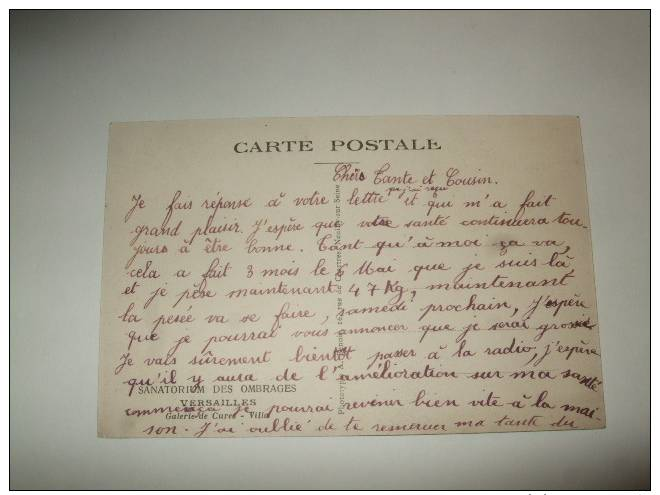 CARTE POSTALE
Chers Tante et Cousin.
Je fais réponse à votre lettre que j'ai reçu et qui m'a fait
grand plaisir. J'espère que votre santé continuera tou-
jours à être bonne. Tant qu'à moi ça va,
cela a fait 3 mois le 6 Mai que je suis là
et je pèse maintenant 47 Kg, maintenant
la pesée va se faire, samedi prochain, j'espère
que je pourrai vous annoncer que je serai grossie
Je vais sûrement bientôt passer à la radio, j'espère
qu'il y aura de l'amélioration sur ma santé
SANATORIUM DES OMBRAGES
VERSAILLES
comme ça je pourrai revenir bien vite à la mai-
Galerie de Cures - Villa
son. J'ai oublié de te remercier ma tante du
Phototypie
Neuilly-sur-Seine